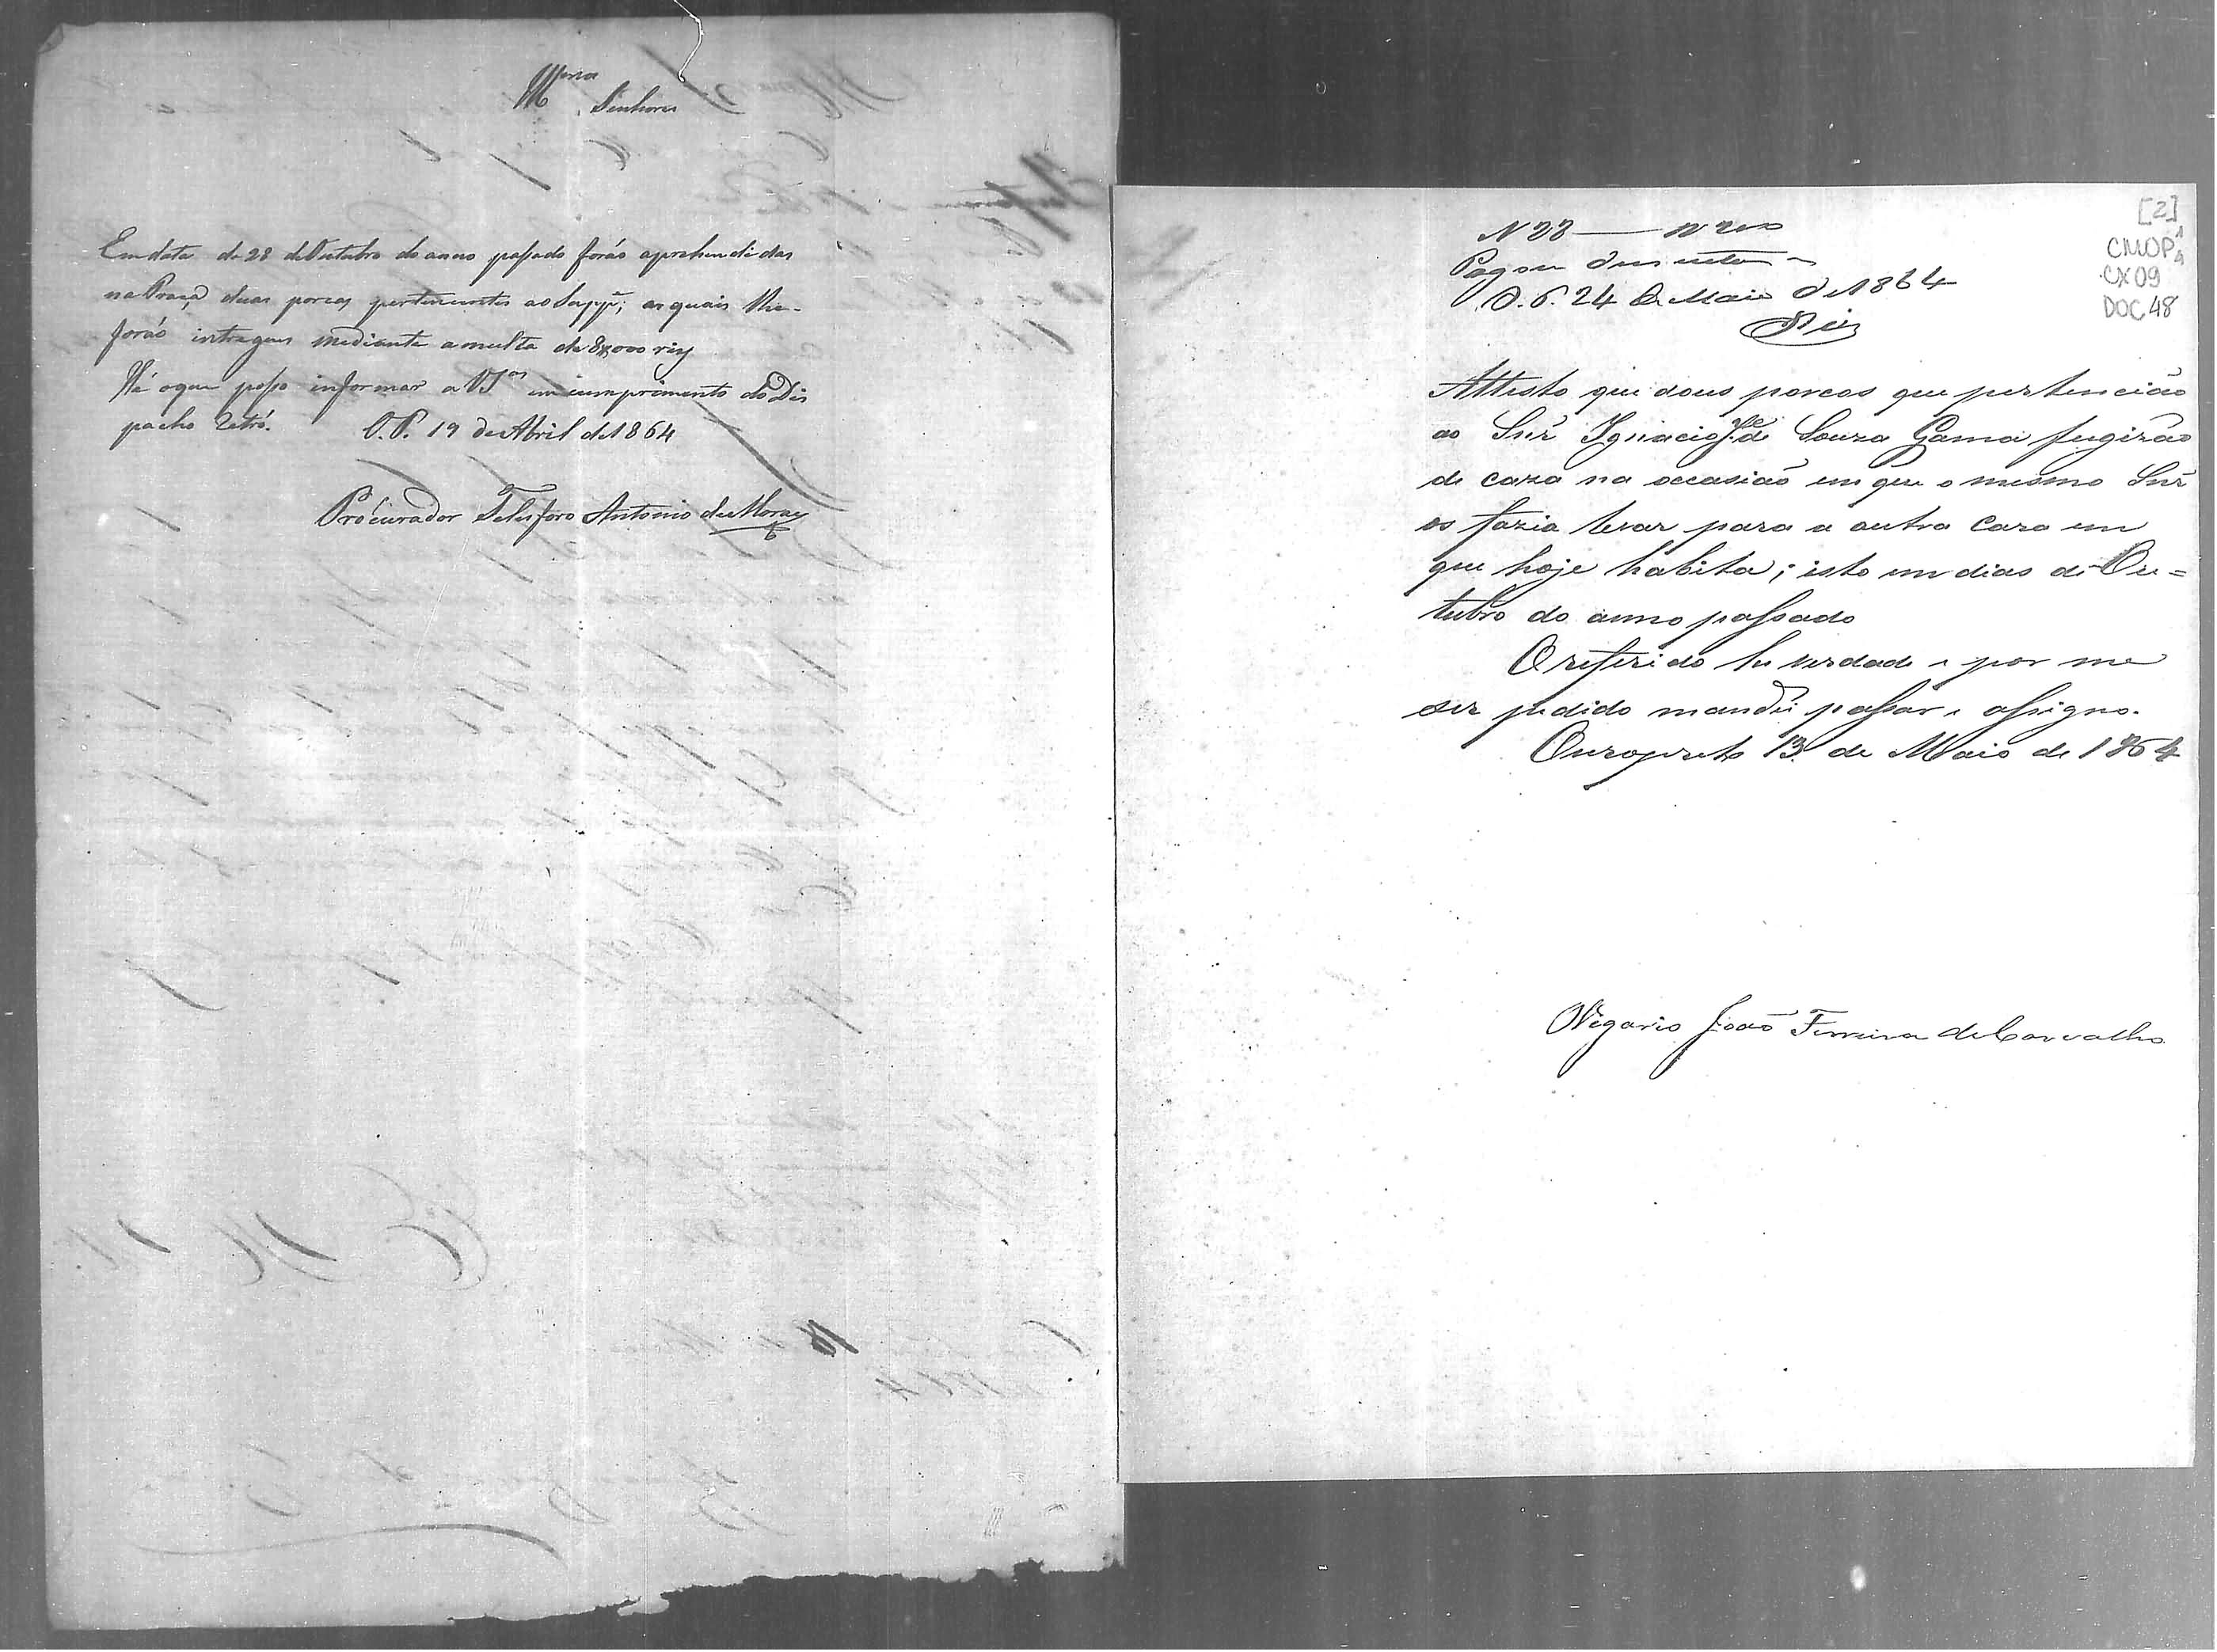 Senhores
Em data de 28 de Outubro do anno passado forão aprehendidas
na Praça duas porcas pertencentes ao Supp.e; as quais lhe
forão intregues mediante a multa de 8$000 reis
Hé o que posso informar a VS.as em cumprimento do Dis
pacho Retró. O. P. 19 de Abril de 1864
Procurador Telesforo Antonio de Moraes
[2]
CMOP
CX 09
DOC 48
N 28 — 200
Pagou dusentos
O. P. 24 de Maio de 1864
Attesto que dous porcos que pertencião
ao Snr̃ Ignacio Je de Souza Gama fugirão
de caza na occasião em que o mesmo Snr̃
os fazia levar para a outra caza em
que hoje habita; isto em dias de Ou=
tubro do anno passado
O referido he verdade e por me
ser pedido mandei passar e assigno.
Ouropreto 13 de Maio de 1864
O Vigario João Ferreira de Carvalho